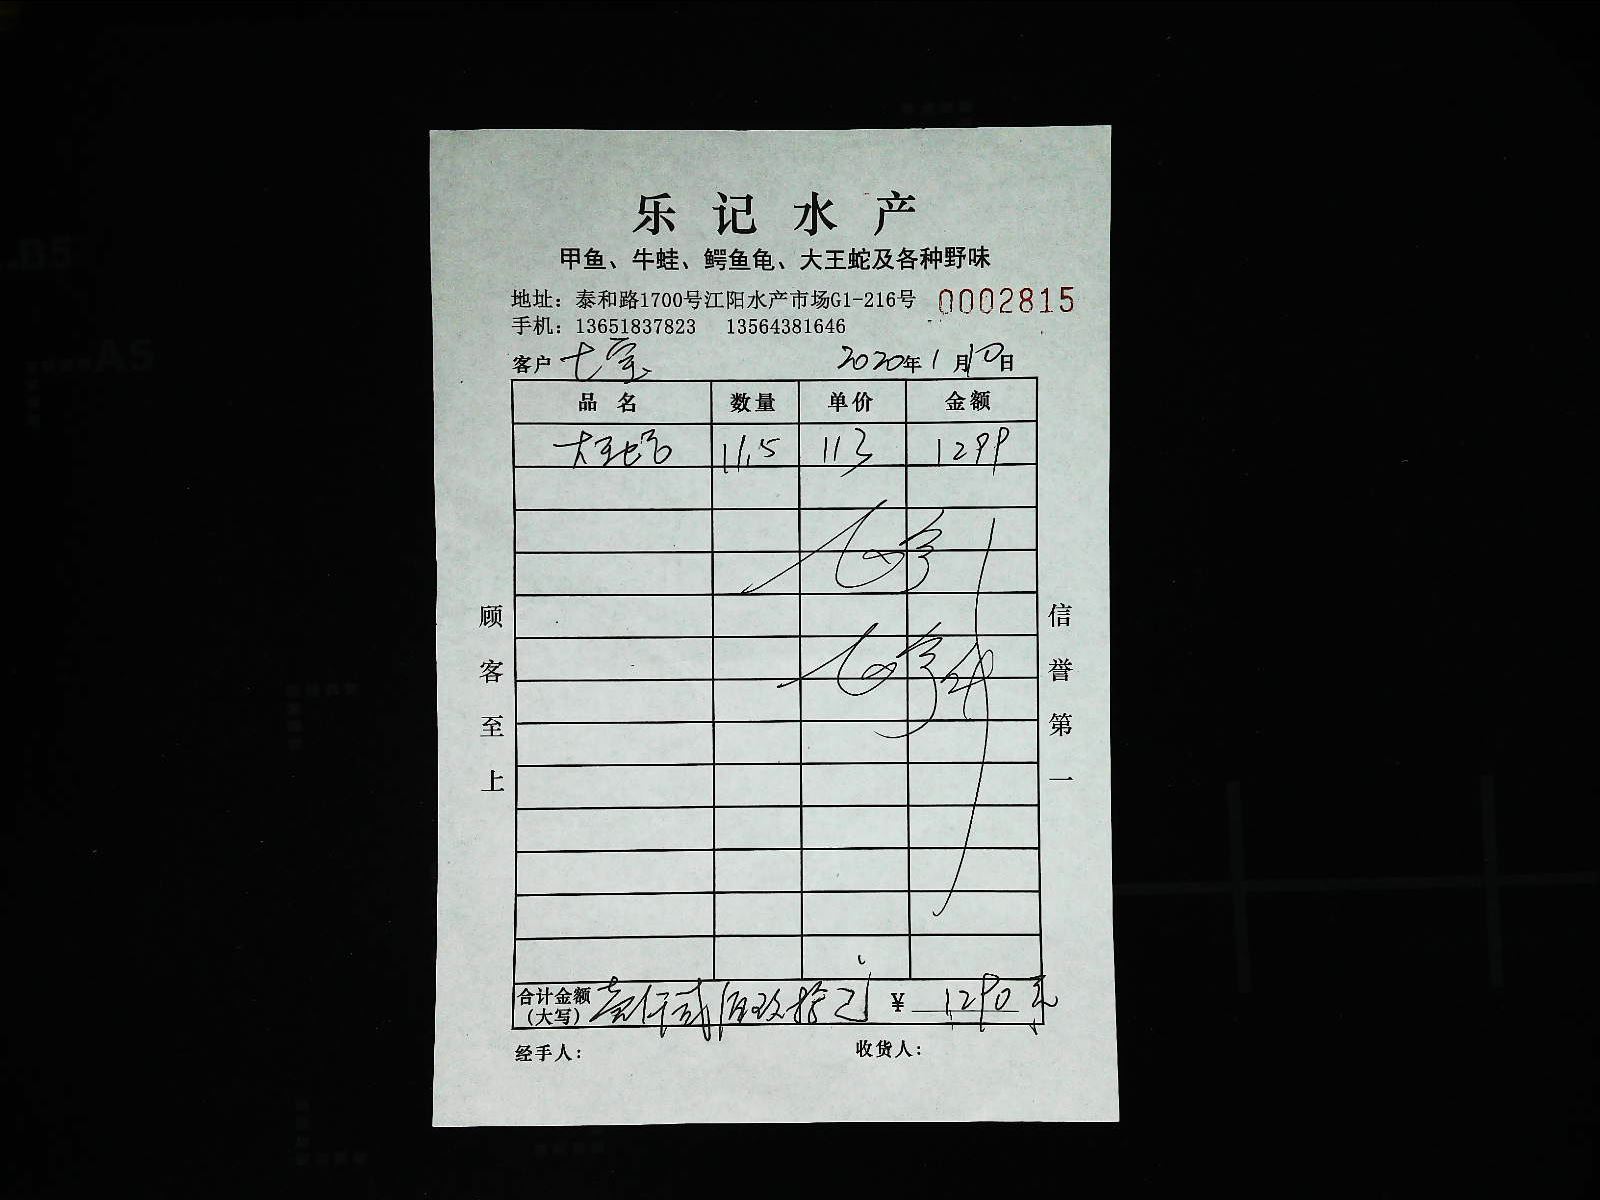 乐记水产
甲鱼、牛蛙、鳄鱼龟、大王蛇及各种野味
地址：泰和路1700号江阳水产市场G1-216号 0002815
手机：13651837823 13564381646
客户 七宝 2020年1月10日
品名 数量 单价 金额
大王蛇 11.5 113 1299
顾客至上
信誉第一
合计金额（大写） 壹仟贰佰玖拾 ¥ 1290元
经手人： 收货人：